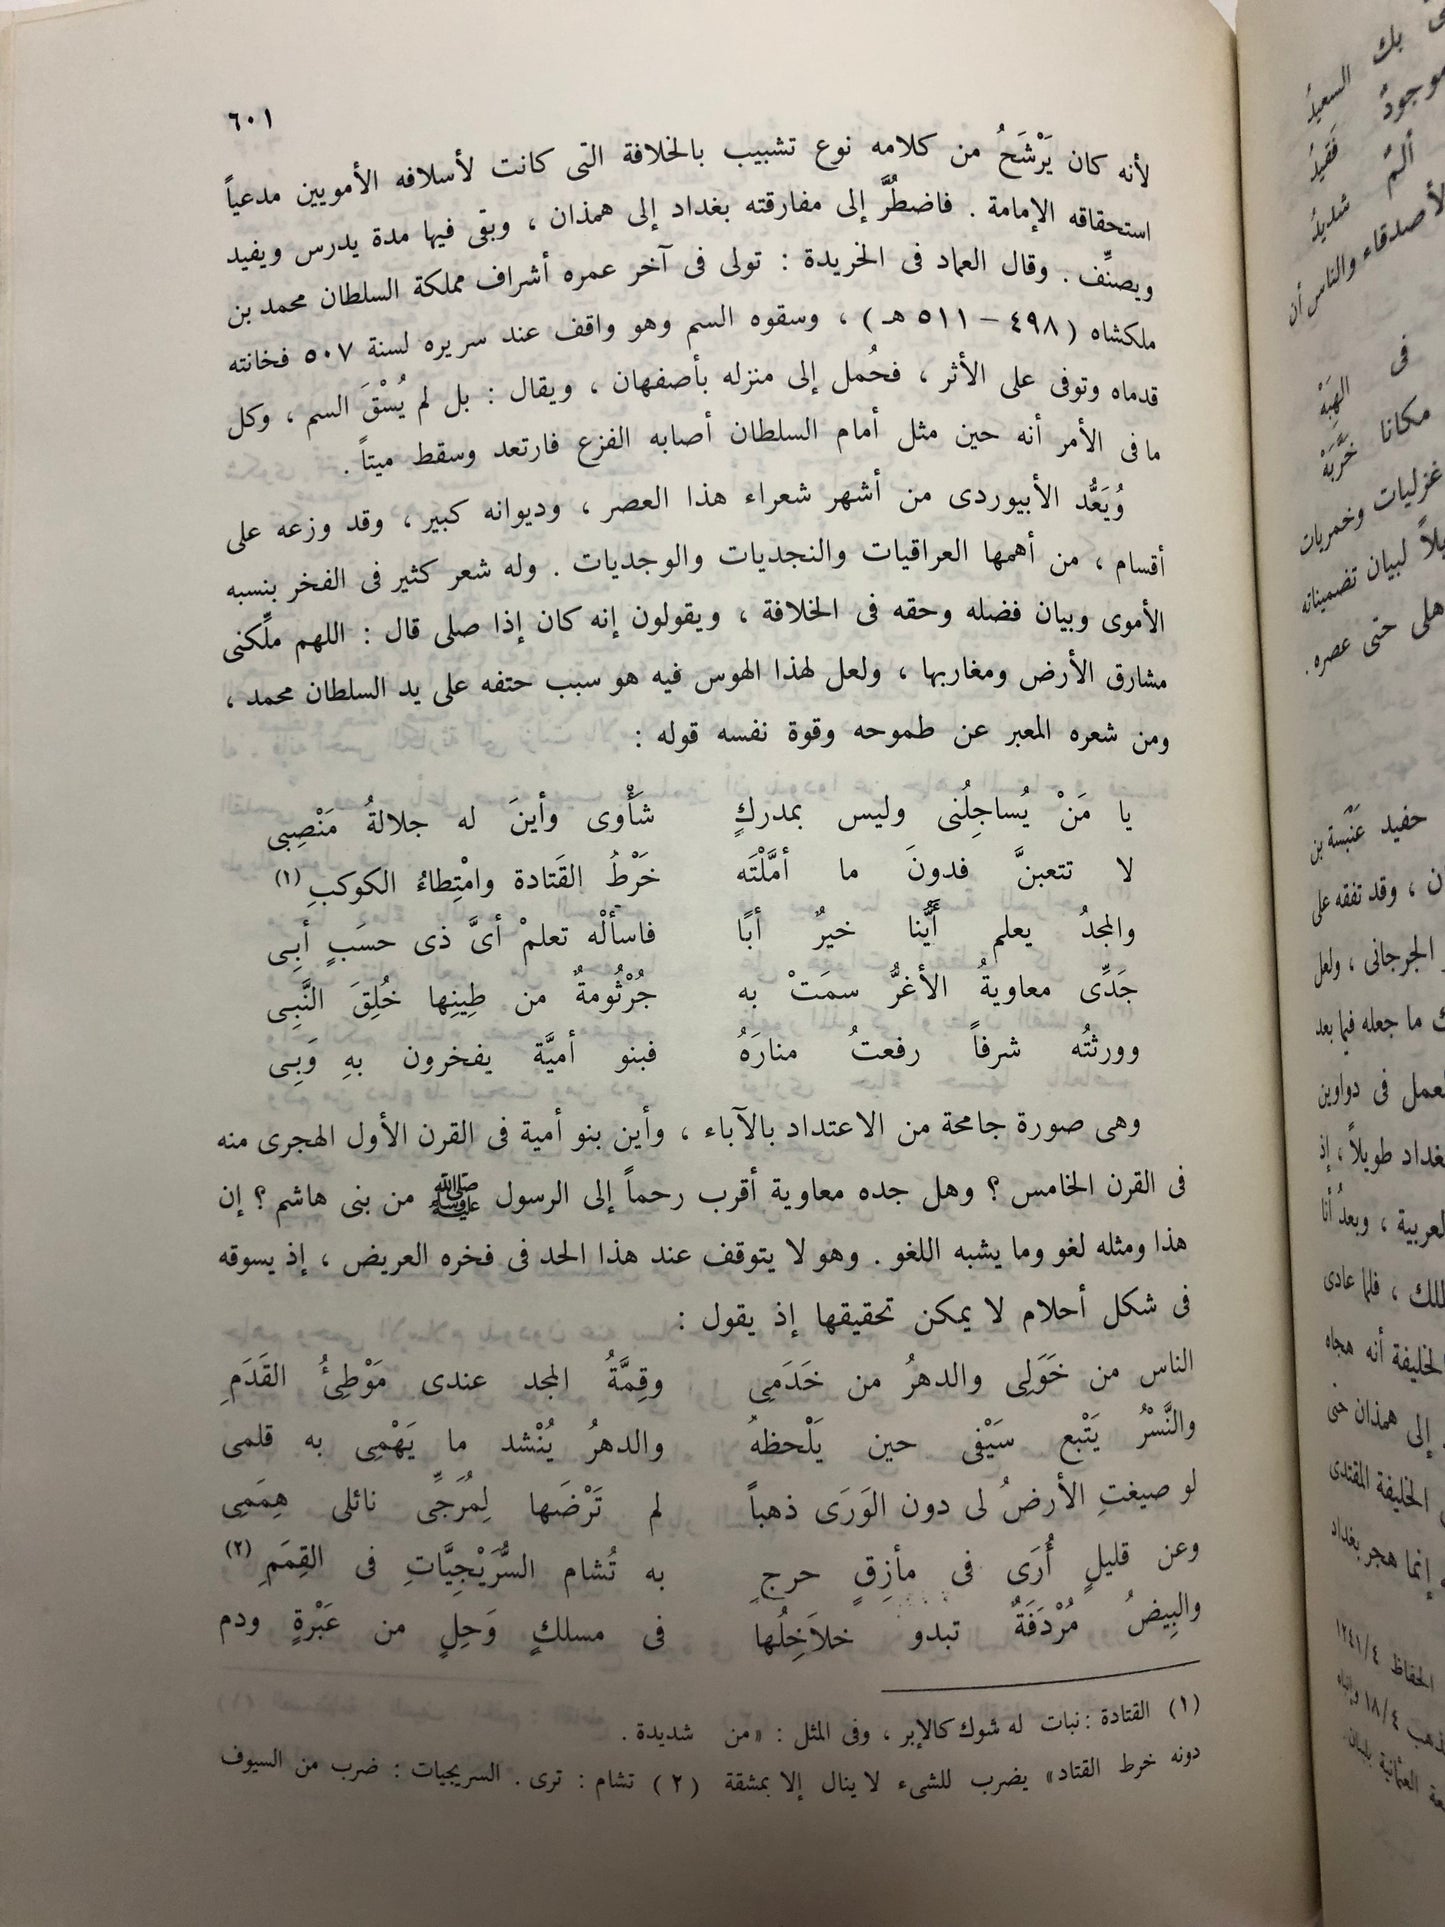 ٦٠١
لأنه كان يَرْشَحُ من كلامه نوع تشبيب بالخلافة التى كانت لأسلافه الأمويين مدعياً
استحقاقه الإمامة . فاضطُرَّ إلى مفارقته بغداد إلى همذان ، وبقى فيها مدة يدرس ويفيد
ويصنِّف . وقال العماد فى الخريدة : تولى فى آخر عمره أشراف مملكة السلطان محمد بن
ملكشاه ( ٤٩٨ – ٥١١ هـ ) ، وسقوه السم وهو واقف عند سريره لسنة ٥٠٧ فخانته
قدماه وتوفى على الأثر ، فحُمل إلى منزله بأصفهان ، ويقال : بل لم يُسْقَ السم ، وكل
ما فى الأمر أنه حين مثل أمام السلطان أصابه الفزع فارتعد وسقط ميتاً .
وُيَعُّد الأبيوردى من أشهر شعراء هذا العصر ، وديوانه كبير ، وقد وزعه على
أقسام ، من أهمها العراقيات والنجديات والوجديات . وله شعر كثير فى الفخر بنسبه
الأموى وبيان فضله وحقه فى الخلافة ، ويقولون إنه كان إذا صلى قال : اللهم ملِّكنى
مشارق الأرض ومغاربها ، ولعل لهذا الهوس فيه هو سبب حتفه على يد السلطان محمد ،
ومن شعره المعبر عن طموحه وقوة نفسه قوله :
يا مَنْ يُساجِلُنى وليس بمدركٍ شَأْوى وأينَ له جلالةُ مَنْصِبى
لا تتعبنَّ فدونَ ما أمَّلْتَه خَرْطُ القَتادة وامْتِطاءُ الكوكبِ (١)
والمجدُ يعلم أَيُّنا خيرٌ أبًا فاسألْه تعلمْ أىَّ ذى حسَبٍ أبِى
جَدِّى معاويةُ الأغرُّ سمَتْ به جُرْثُومةٌ من طِينِها خُلِقَ النَّبِى
وورثتُه شرفاً رفعتُ منارَهُ فبنو أميَّة يفخرون بهِ وَبِى
وهى صورة جامحة من الاعتداد بالآباء ، وأين بنو أمية فى القرن الأول الهجرى منه
فى القرن الخامس ؟ وهل جده معاوية أقرب رحماً إلى الرسول ﷺ من بنى هاشم ؟ إن
هذا ومثله لغو وما يشبه اللغو . وهو لا يتوقف عند هذا الحد فى فخره العريض ، إذ يسوقه
فى شكل أحلام لا يمكن تحقيقها إذ يقول :
الناس من خَوَلِى والدهرُ من خَدَمِى وقِمَّةُ المجد عندى مَوْطِئُ القَدَمِ
والنَّسْرُ يَتْبع سَيْفى حين يَلْحظهُ والدهرُ يُنْشد ما يَهْمِى به قلمى
لو صيغتِ الأرضُ لى دون الوَرَى ذهباً لم تَرْضَها لِمُرَجِّى نائلى هِمَمِى
وعن قليلٍ أُرَى فى مأزِقٍ حرجٍ به تُشام السُّرَيْجِيَّاتِ فى القِمَمِ (٢)
والبِيضُ مُرْدَفَةٌ تبدو خلاَخِلُها فى مسلكٍ وَحِلٍ من عَبْرةٍ ودم
(١) القتادة : نبات له شوك كالإبر ، وفى المثل : « من شديدة .
دونه خرط القتاد» يضرب للشىء لا ينال إلا بمشقة (٢) تشام : ترى . السريجيات : ضرب من السيوف
بك السعيدُ
موجودٌ فَقيدُ
ألمٌ شديدُ
لأصدقاء والناس أن
فى الهِبَهْ
مكانا خَرَّبَهْ
غزليات وخمريات
لبيان تضميناته
هلى حتى عصره .
حفيد عَنْبَسة بن
، وقد تفقه على
الجرجانى ، ولعل
ما جعله فيما بعد
فى دواوين
طويلاً ، إذ
، وبعدُ أنا
، فلما عادى
الخليفة أنه هجاه
إلى همذان حتى
الخليفة المقتدى
إنما هجر بغداد
الحفاظ ١٢٤١/٤
١٨/٤